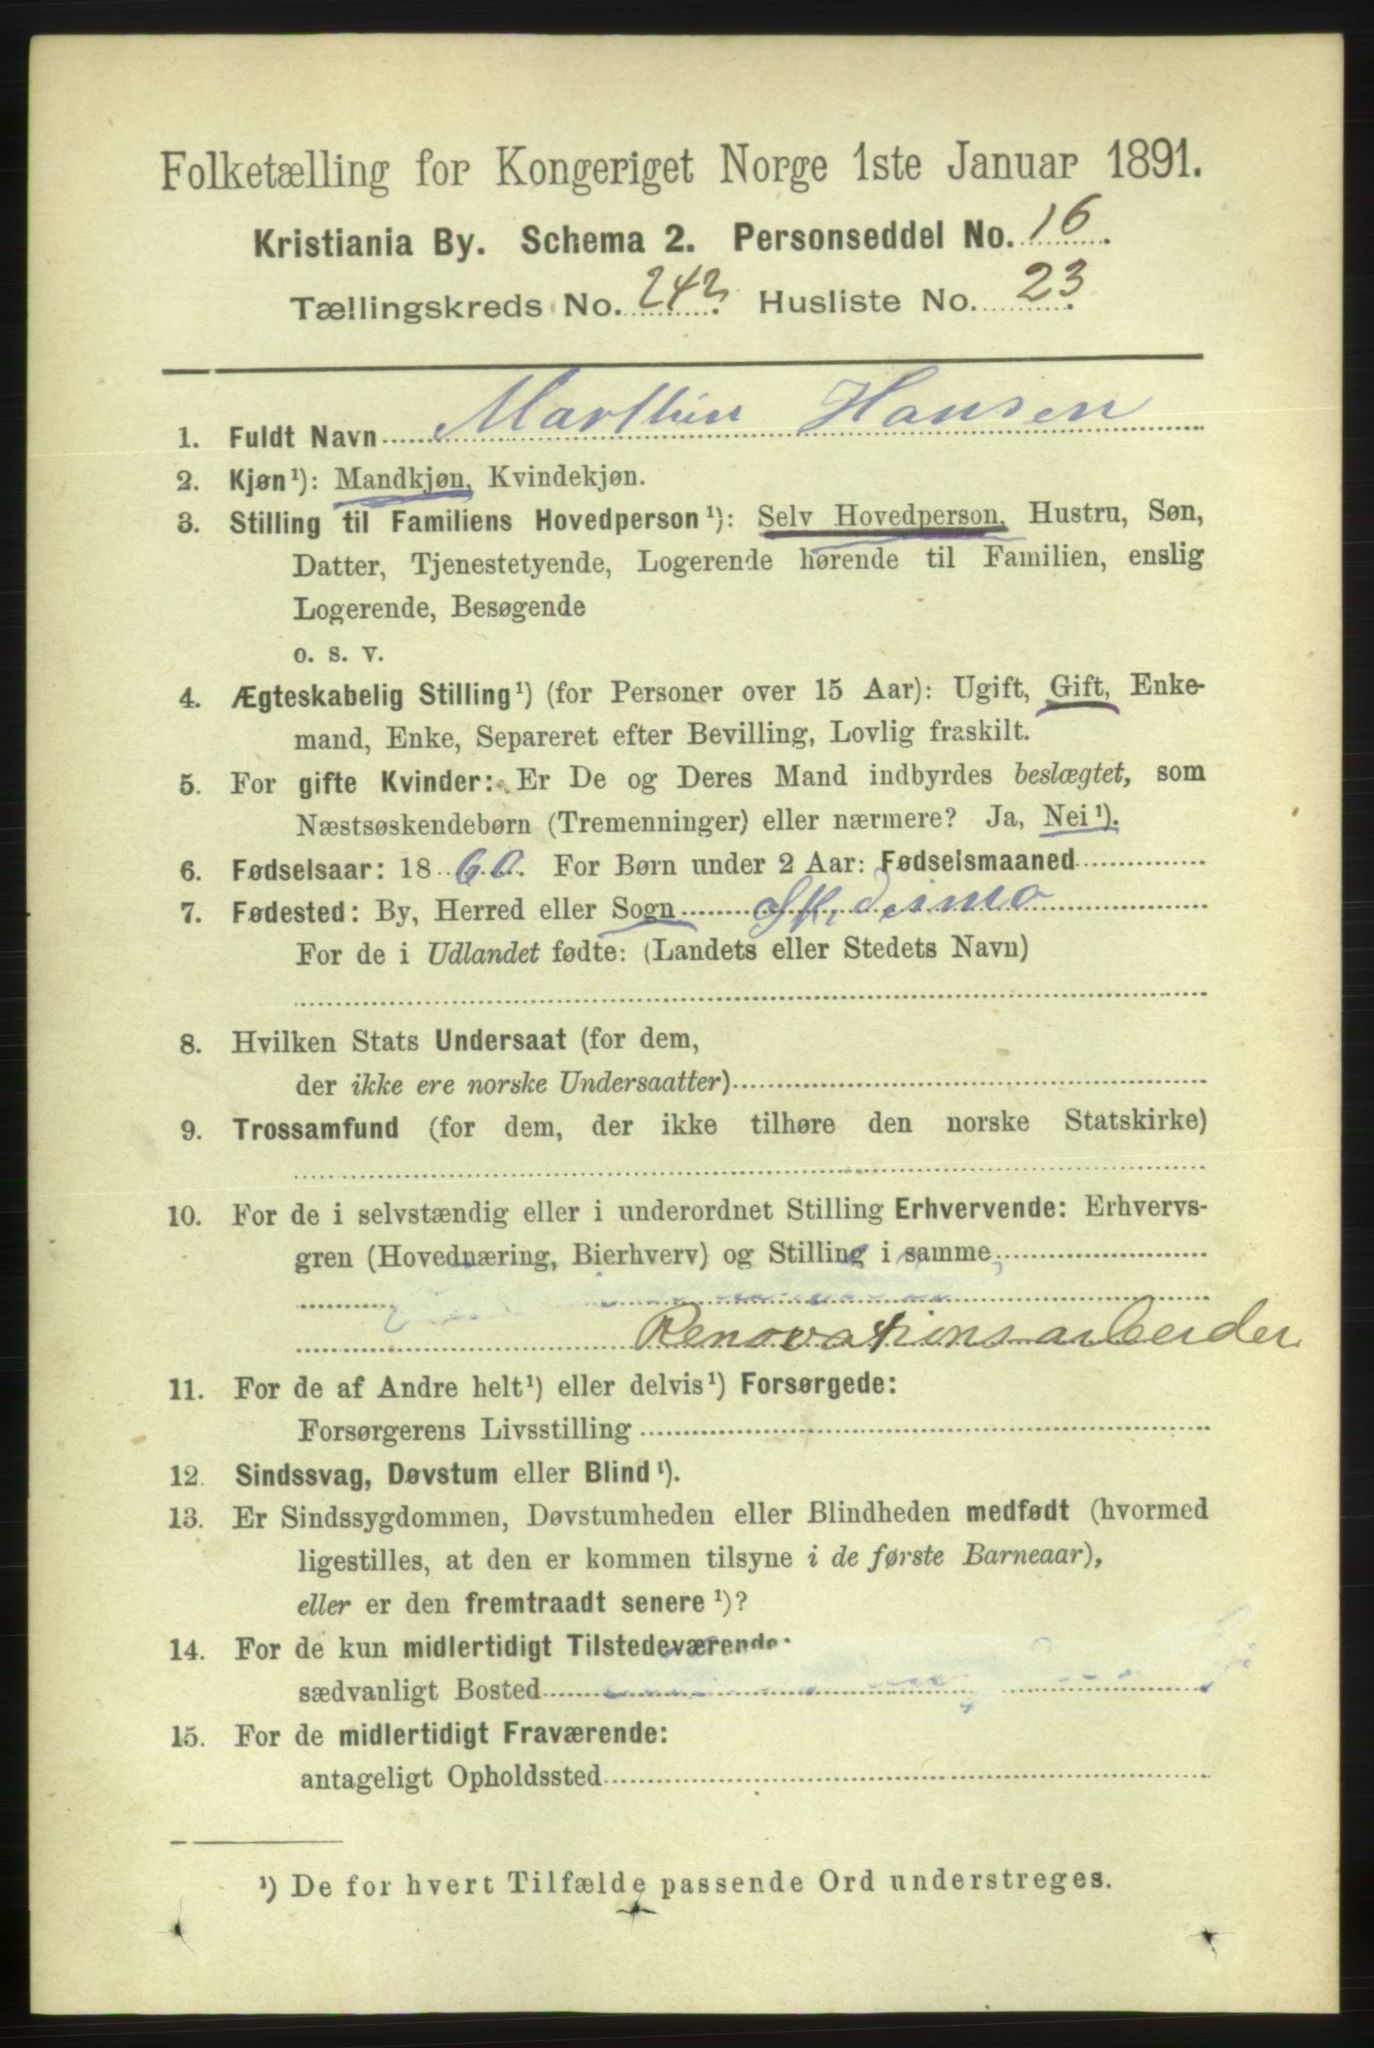 Folketælling for Kongeriget Norge 1ste Januar 1891.
Kristiania By. Schema 2. Personseddel No. 16.
Tællingskreds No. 242. Husliste No. 23
1. Fuldt Navn Marthin Hansen
2. Kjøn¹): Mandkjøn, Kvindekjøn.
3. Stilling til Familiens Hovedperson¹): Selv Hovedperson, Hustru, Søn,
Datter, Tjenestetyende, Logerende hørende til Familien, enslig
Logerende, Besøgende
o. s. v.
4. Ægteskabelig Stilling¹) (for Personer over 15 Aar): Ugift, Gift, Enke-
mand, Enke, Separeret efter Bevilling, Lovlig fraskilt.
5. For gifte Kvinder: Er De og Deres Mand indbyrdes beslægtet, som
Næstsøskendebørn (Tremenninger) eller nærmere? Ja, Nei¹).
6. Fødselsaar: 1860. For Børn under 2 Aar: Fødselsmaaned
7. Fødested: By, Herred eller Sogn
For de i Udlandet fødte: (Landets eller Stedets Navn)
8. Hvilken Stats Undersaat (for dem,
der ikke ere norske Undersaatter)
9. Trossamfund (for dem, der ikke tilhøre den norske Statskirke)
10. For de i selvstændig eller i underordnet Stilling Erhvervende: Erhvervs-
gren (Hovednæring, Bierhverv) og Stilling i samme
Renovationsarbeider
11. For de af Andre helt¹) eller delvis¹) Forsørgede:
Forsørgerens Livsstilling
12. Sindssvag, Døvstum eller Blind¹).
13. Er Sindssygdommen, Døvstumheden eller Blindheden medfødt (hvormed
ligestilles, at den er kommen tilsyne i de første Barneaar),
eller er den fremtraadt senere¹)?
14. For de kun midlertidigt Tilstedeværende:
sædvanligt Bosted
15. For de midlertidigt Fraværende:
antageligt Opholdssted
¹) De for hvert Tilfælde passende Ord understreges.